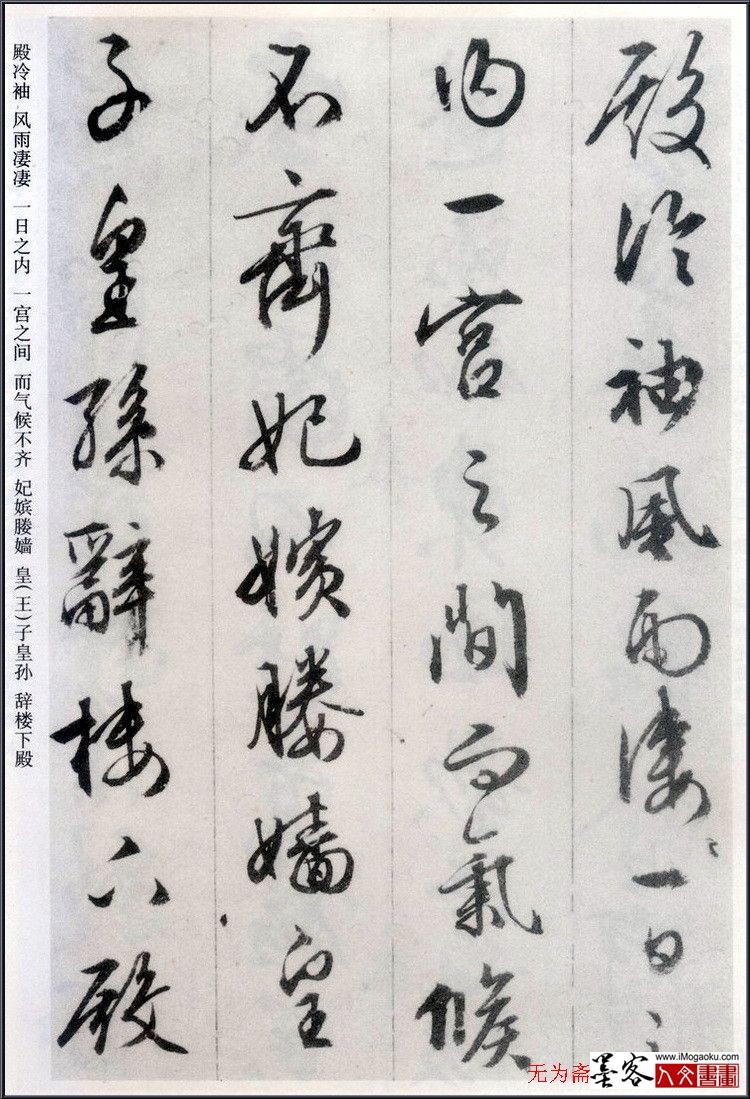 殿冷袖風雨凄〻一日之
内一宫之間而氣候
不齊妃嬪媵嬙皇
子皇孫辭樓下殿
殿冷袖 风雨凄凄 一日之内 一宫之间 而气候不齐 妃嫔媵嫱 皇(王)子皇孙 辞楼下殿
无为斋
墨客
www.iMogaoku.com
人文書畫